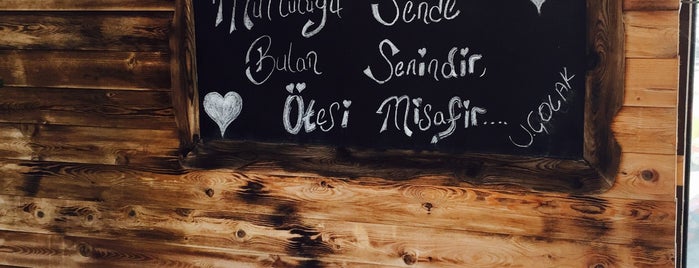 Mutluluğu Sende
Bulan Senindir,
Ötesi Misafir....
UÇOLAK